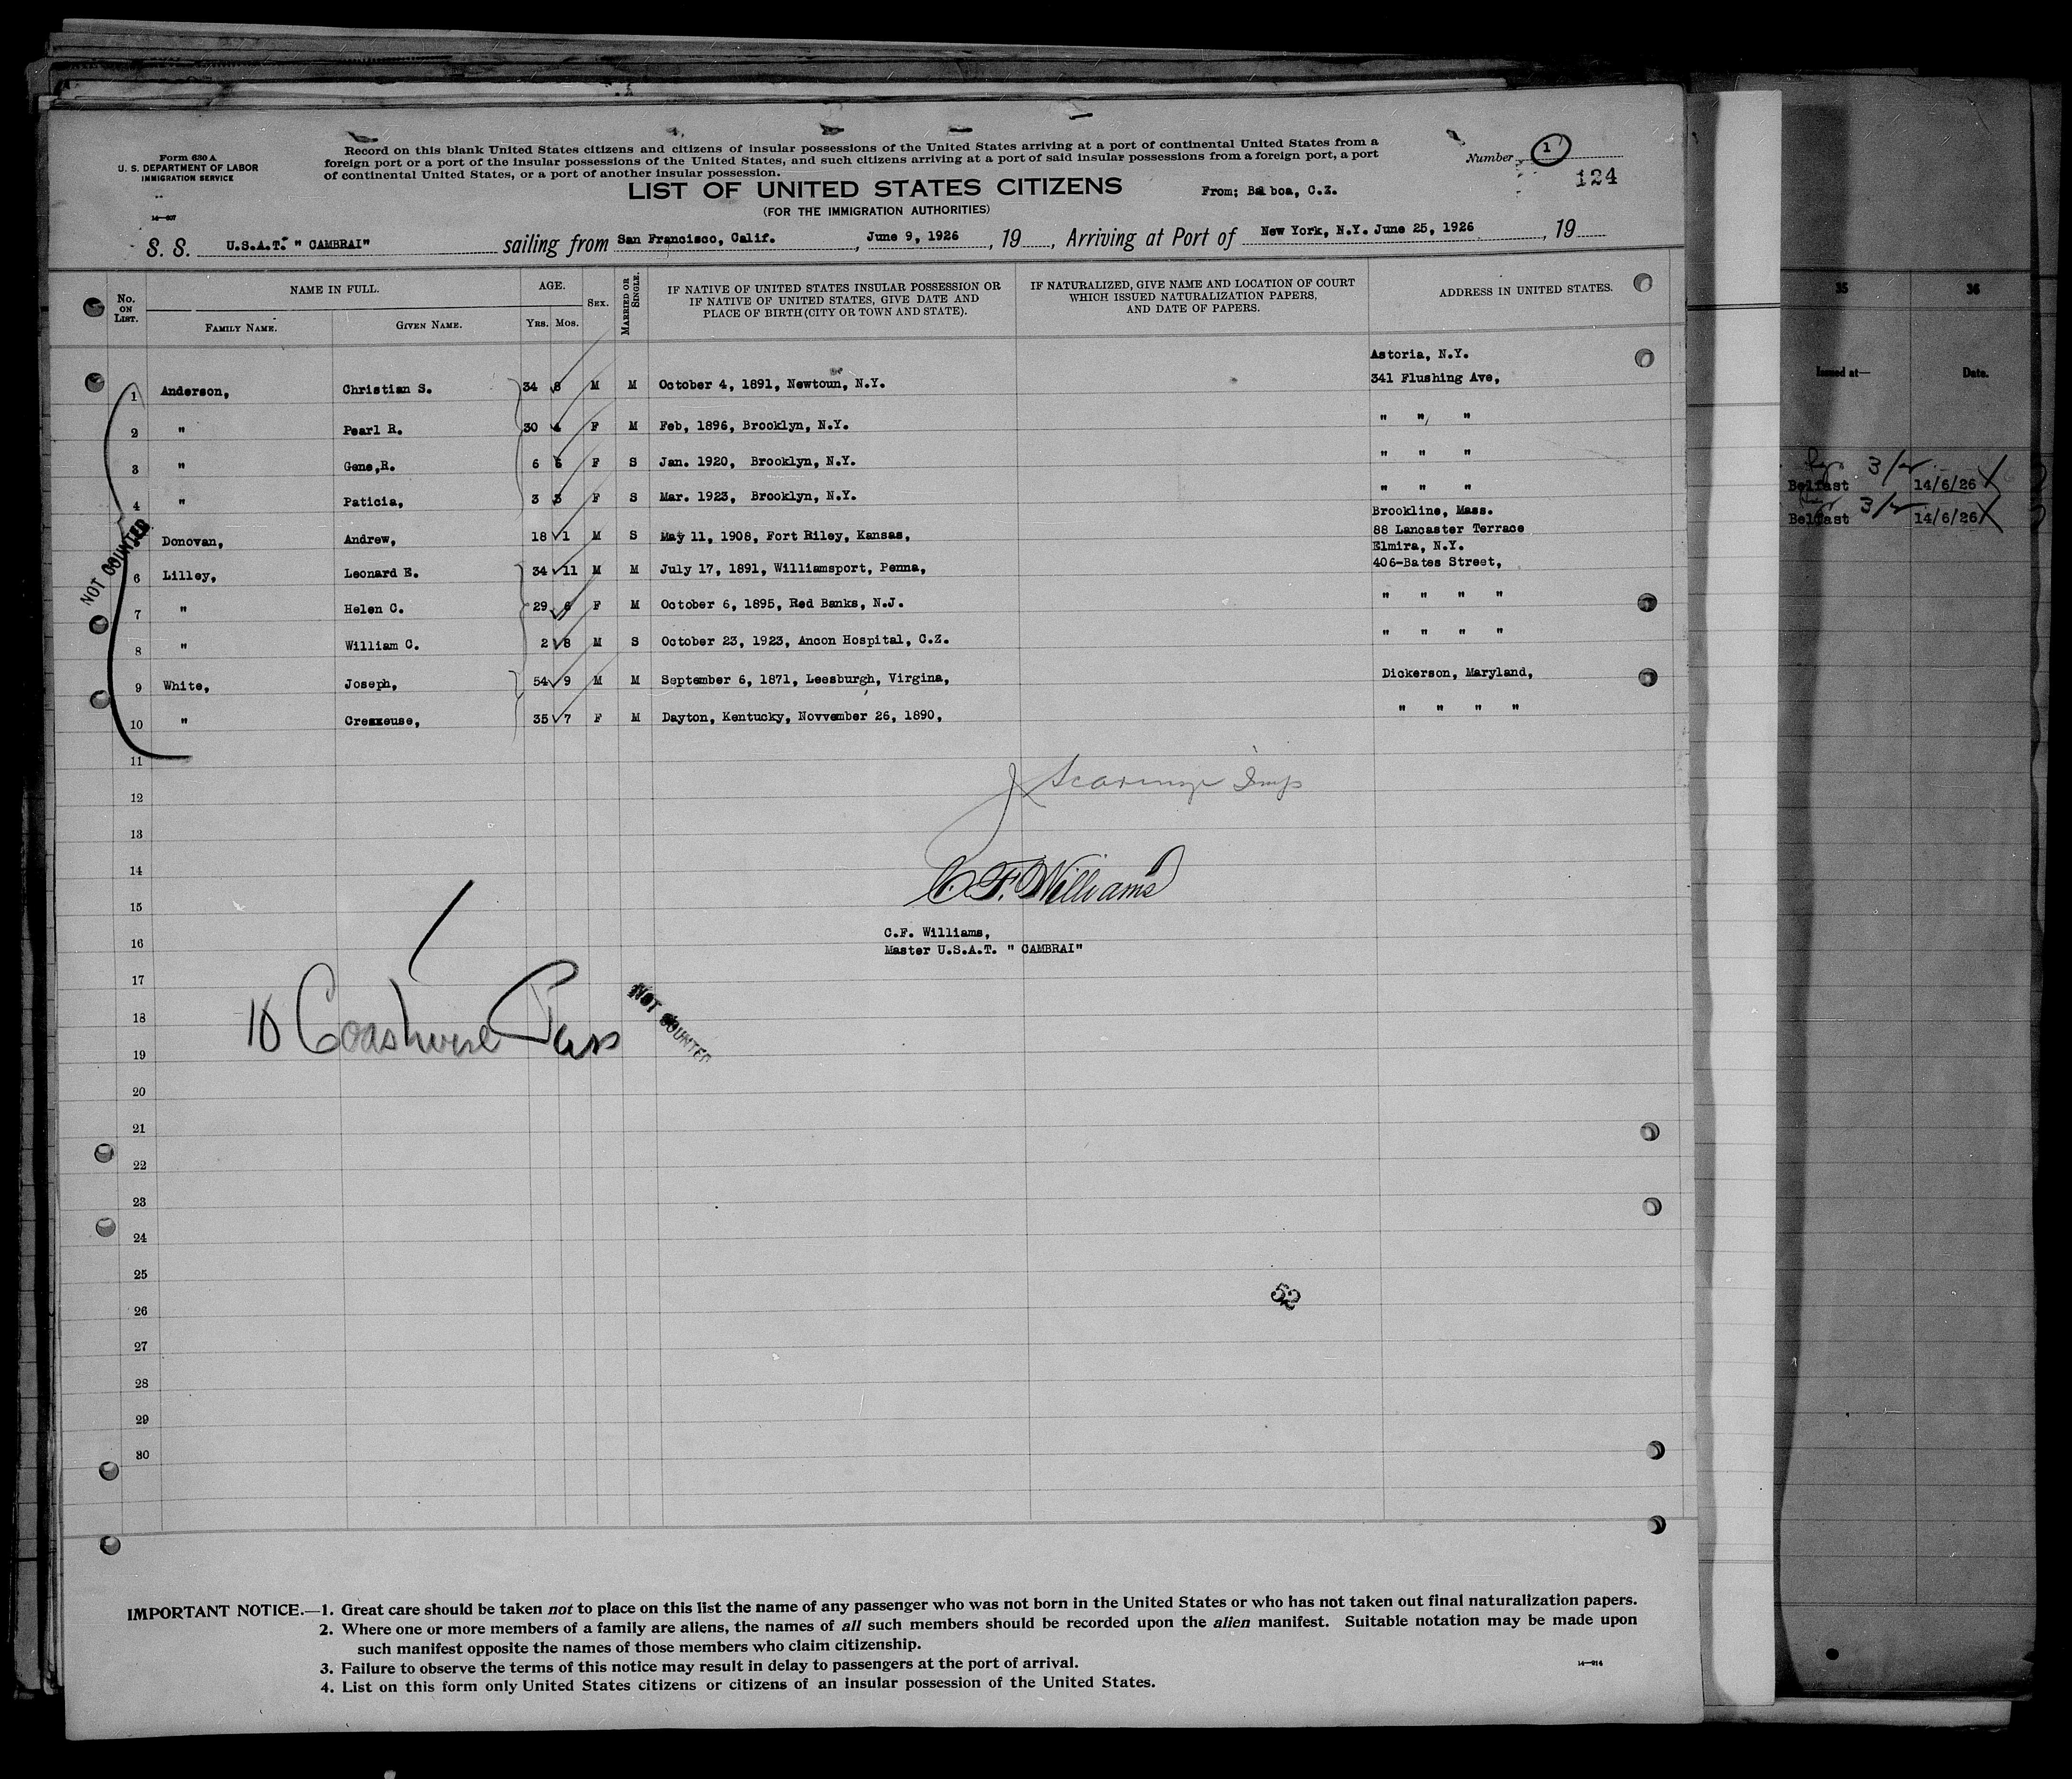 Form 630 A
U. S. DEPARTMENT OF LABOR
IMMIGRATION SERVICE
14—607
Record on this blank United States citizens and citizens of insular possessions of the United States arriving at a port of continental United States from a
foreign port or a port of the insular possessions of the United States, and such citizens arriving at a port of said insular possessions from a foreign port, a port
of continental United States, or a port of another insular possession.
Number 1
124
LIST OF UNITED STATES CITIZENS
From; Balboa, C.Z.
(FOR THE IMMIGRATION AUTHORITIES)
S. S. U.S.A.T. " CAMBRAI" sailing from San Francisco, Calif. , June 9, 1926 , 19 , Arriving at Port of New York, N.Y. June 25, 1926 , 19
No. ON LIST. NAME IN FULL. FAMILY NAME. GIVEN NAME. AGE. YRS. MOS. SEX. MARRIED OR SINGLE. IF NATIVE OF UNITED STATES INSULAR POSSESSION OR IF NATIVE OF UNITED STATES, GIVE DATE AND PLACE OF BIRTH (CITY OR TOWN AND STATE). IF NATURALIZED, GIVE NAME AND LOCATION OF COURT WHICH ISSUED NATURALIZATION PAPERS, AND DATE OF PAPERS. ADDRESS IN UNITED STATES.
Astoria, N.Y.
1 Anderson, Christian S. 34 8 M M October 4, 1891, Newtoun, N.Y. 341 Flushing Ave,
2 " Pearl R. 30 4 F M Feb, 1896, Brooklyn, N.Y. " " "
3 " Gene,R. 6 5 F S Jan. 1920, Brooklyn, N.Y. " " "
4 " Paticia, 3 3 F S Mar. 1923, Brooklyn, N.Y. " " "
Brookline, Mass.
Donovan, Andrew, 18 1 M S May 11, 1908, Fort Riley, Kansas, 88 Lancaster Terrace
Elmira, N.Y.
6 Lilley, Leonard E. 34 11 M M July 17, 1891, Williamsport, Penna, 406-Bates Street,
7 " Helen C. 29 8 F M October 6, 1895, Red Banks, N.J. " " " "
8 " William C. 2 8 M S October 23, 1923, Ancon Hospital, C.Z. " " " "
9 White, Joseph, 54 9 M M September 6, 1871, Leesburgh, Virgina, Dickerson, Maryland,
10 " 35 7 F M Dayton, Kentucky, Novvember 26, 1890, " " " "
NOT COUNTED
11
12
13
14
C. F. Williams
15
C.F. Williams,
16
Master U.S.A.T. " CAMBRAI"
17
18
10 Coastwise Pass
NOT COUNTED
19
20
21
22
23
24
25
26
52
27
28
29
30
IMPORTANT NOTICE.—1. Great care should be taken not to place on this list the name of any passenger who was not born in the United States or who has not taken out final naturalization papers.
2. Where one or more members of a family are aliens, the names of all such members should be recorded upon the alien manifest. Suitable notation may be made upon
such manifest opposite the names of those members who claim citizenship.
3. Failure to observe the terms of this notice may result in delay to passengers at the port of arrival.
4. List on this form only United States citizens or citizens of an insular possession of the United States.
14—214
35 36
Issued at— Date.
3/
Belfast 14/6/26
3/
Belfast 14/6/26